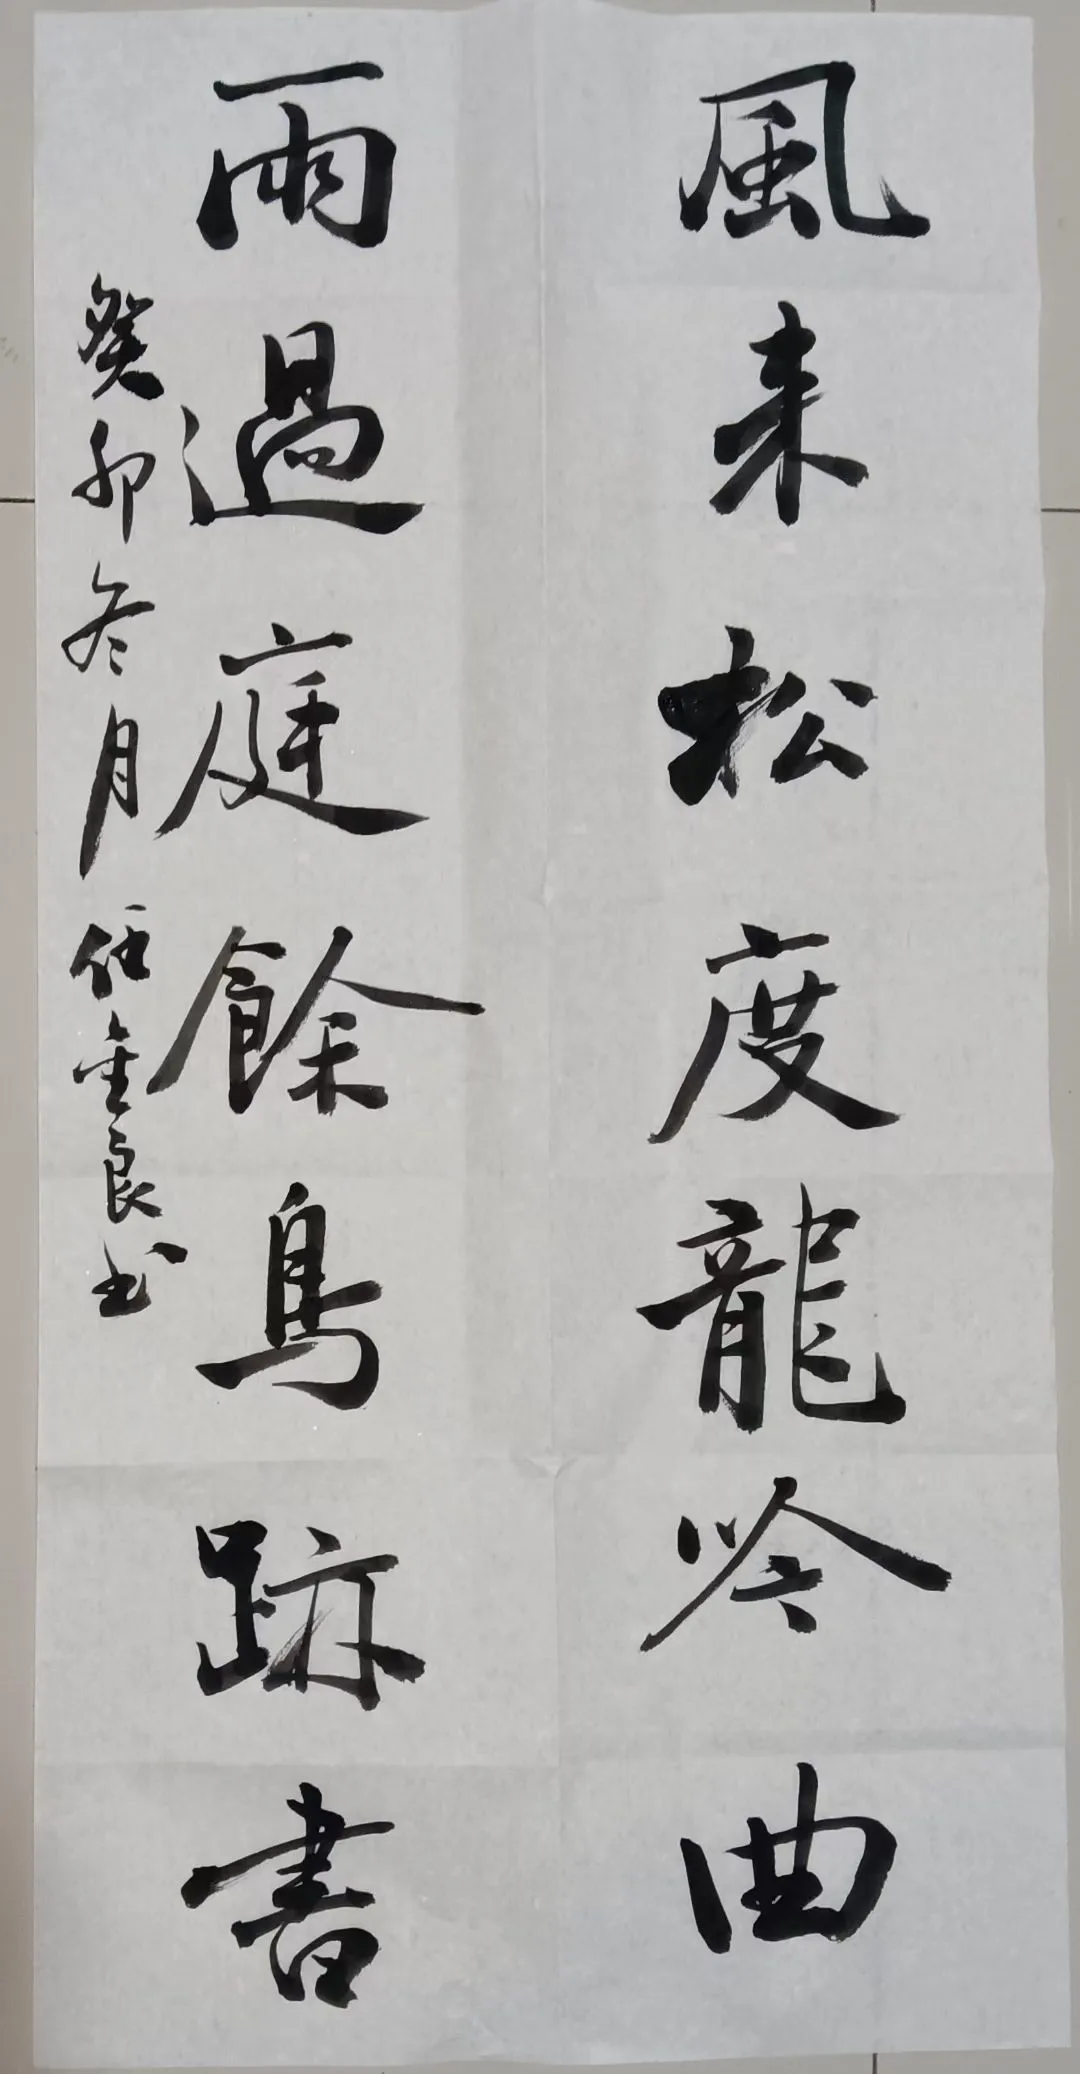 風来松度龍吟曲
雨過庭餘鳥跡書
癸卯冬月任金良书